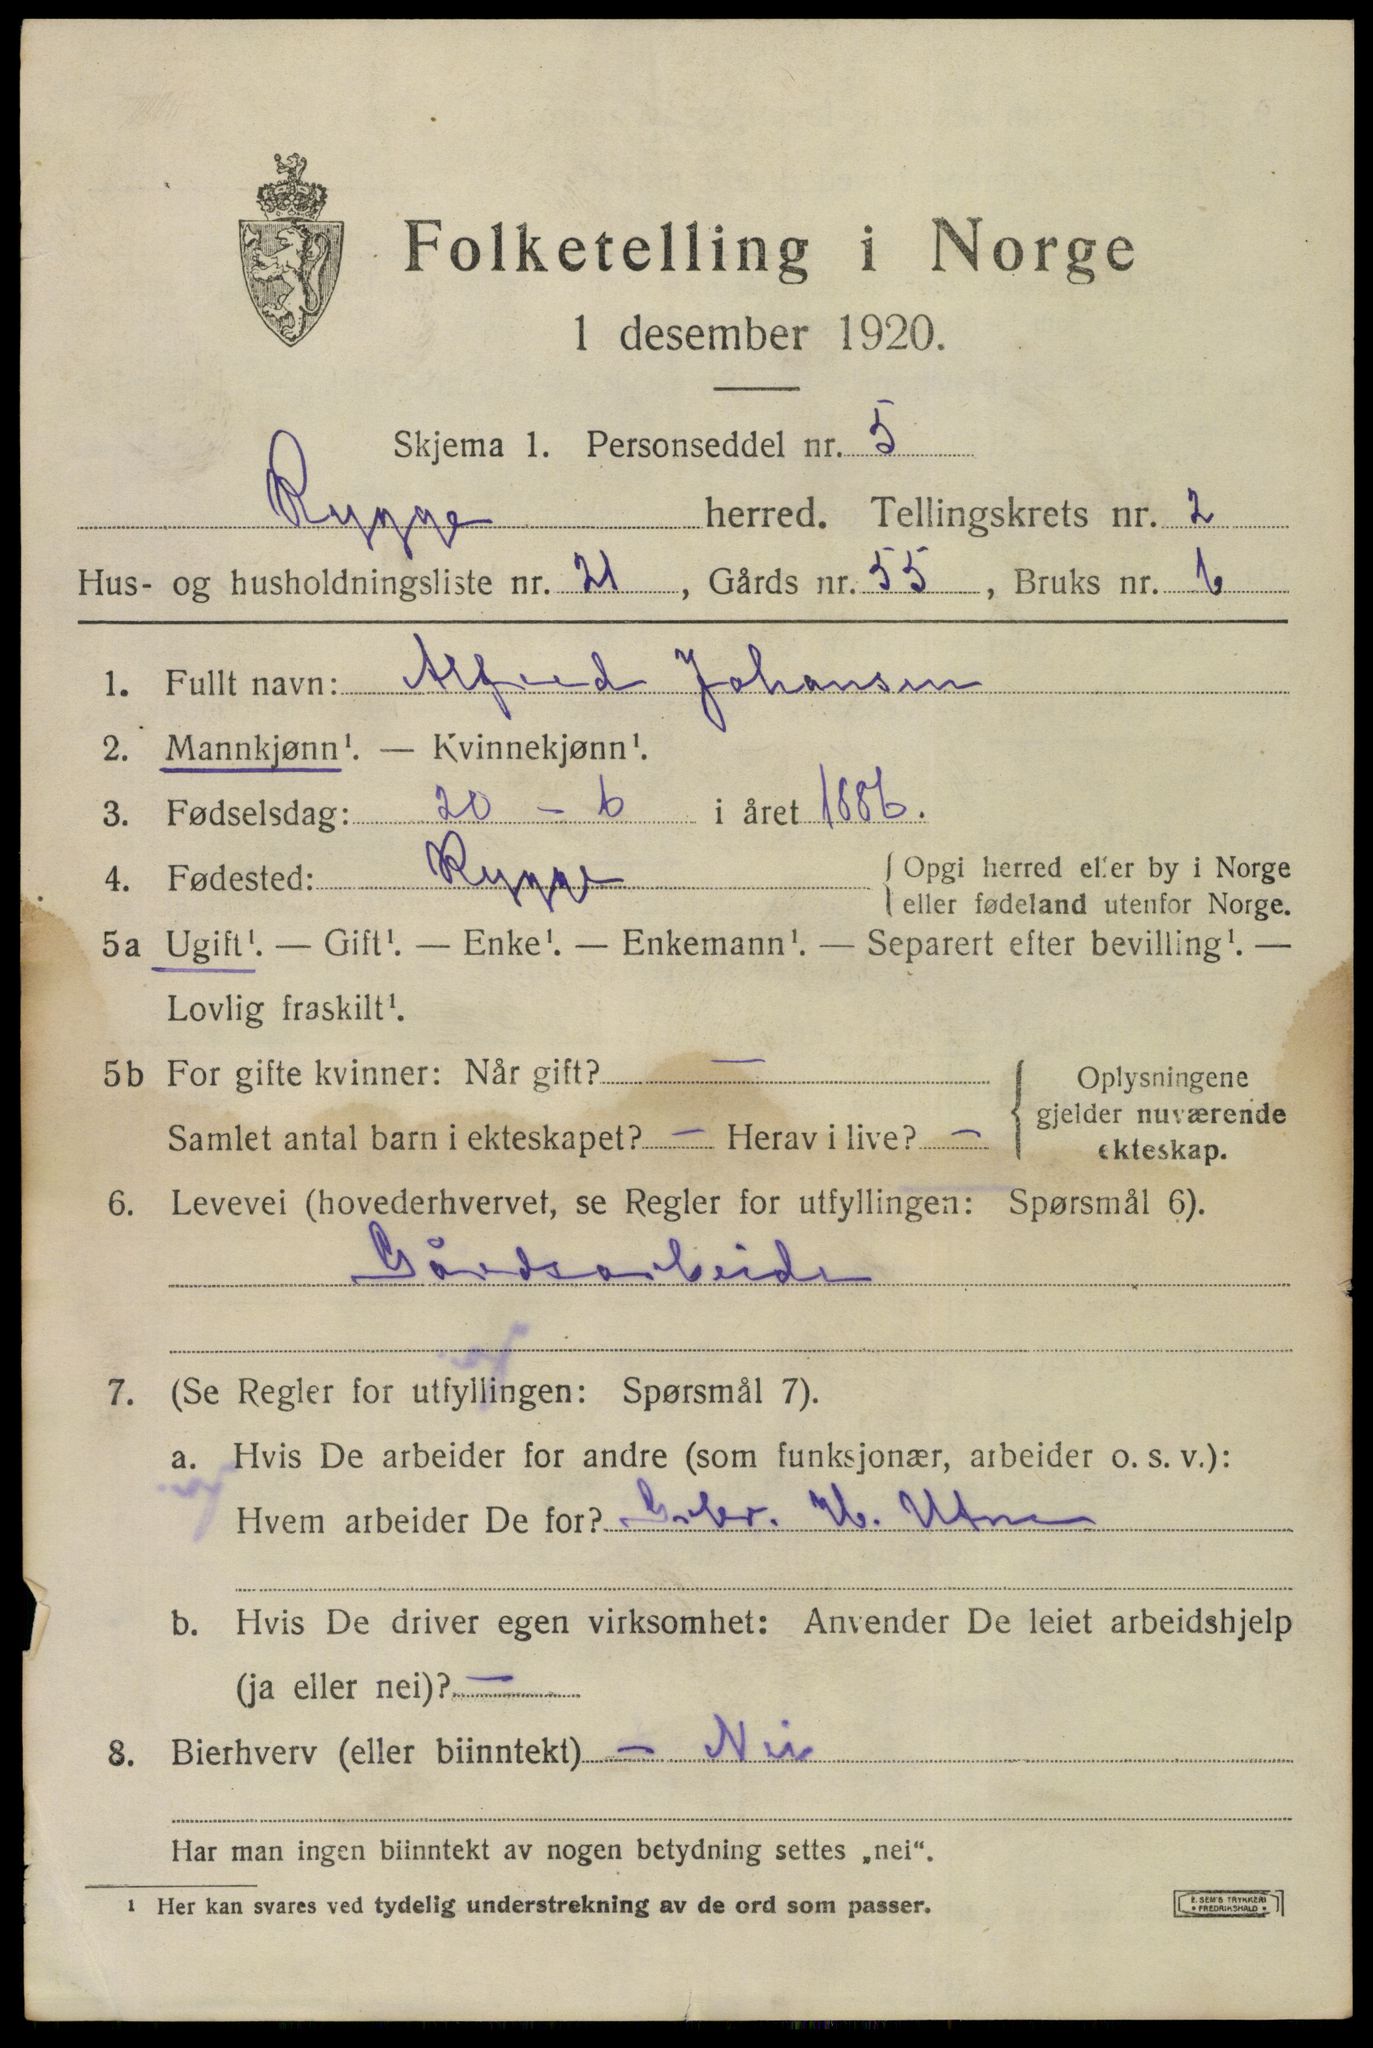 Folketelling i Norge
1 desember 1920.
Skjema 1. Personseddel nr. 5
Rygge herred. Tellingskrets nr. 2
Hus- og husholdningsliste nr. 21, Gårds nr. 55, Bruks nr. 6
1. Fullt navn: Alfred Johansen
2. Mannkjønn¹. — Kvinnekjønn¹.
3. Fødselsdag: 20 – 6 i året 1886.
4. Fødested: Rygge { Opgi herred eller by i Norge
eller fødeland utenfor Norge.
5a Ugift¹. — Gift¹. — Enke¹. — Enkemann¹. — Separert efter bevilling¹. —
Lovlig fraskilt¹.
5b For gifte kvinner: Når gift? —
Samlet antal barn i ekteskapet? — Herav i live? —
{ Oplysningene
gjelder nuværende
ekteskap.
6. Levevei (hovederhvervet, se Regler for utfyllingen: Spørsmål 6).
Gårdsarbeide
7. (Se Regler for utfyllingen: Spørsmål 7).
a. Hvis De arbeider for andre (som funksjonær, arbeider o. s. v.):
Hvem arbeider De for?
b. Hvis De driver egen virksomhet: Anvender De leiet arbeidshjelp
(ja eller nei)? —
8. Bierhverv (eller biinntekt) — Nei
Har man ingen biinntekt av nogen betydning settes „nei“.
¹ Her kan svares ved tydelig understrekning av de ord som passer.
E. SEM'S TRYKKERI
• FREDRIKSHALD •